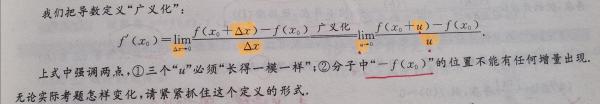 我们把导数定义“广义化”：
f′(x₀)=lim_{Δx→0} (f(x₀+Δx)−f(x₀))/Δx =广义化= lim_{u→0} (f(x₀+u)−f(x₀))/u.
上式中强调两点，①三个“u”必须“长得一模一样”；②分子中“−f(x₀)”的位置不能有任何增量出现.
无论实际考题怎样变化，请紧紧抓住这个定义的形式.